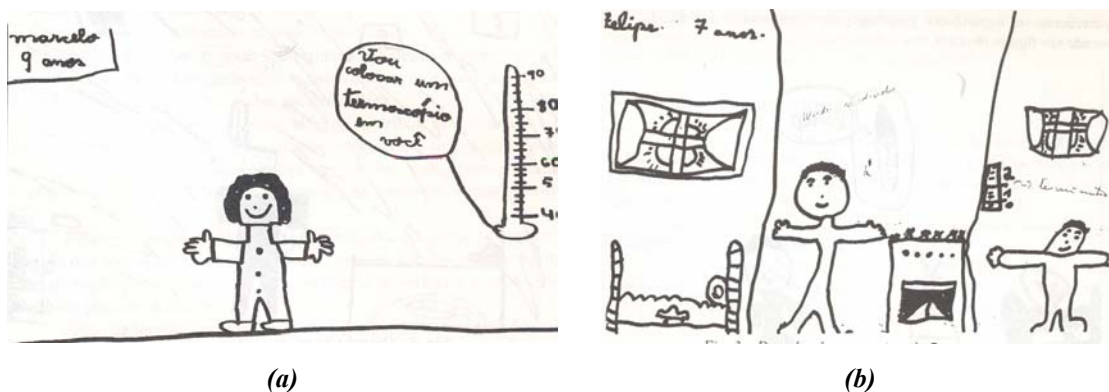 marcelo
9 anos
Vou
colocar um
termocópio
em
você
90
80
7
60
5
40
Felipe. 7 anos.
2
1
0
(a)
(b)